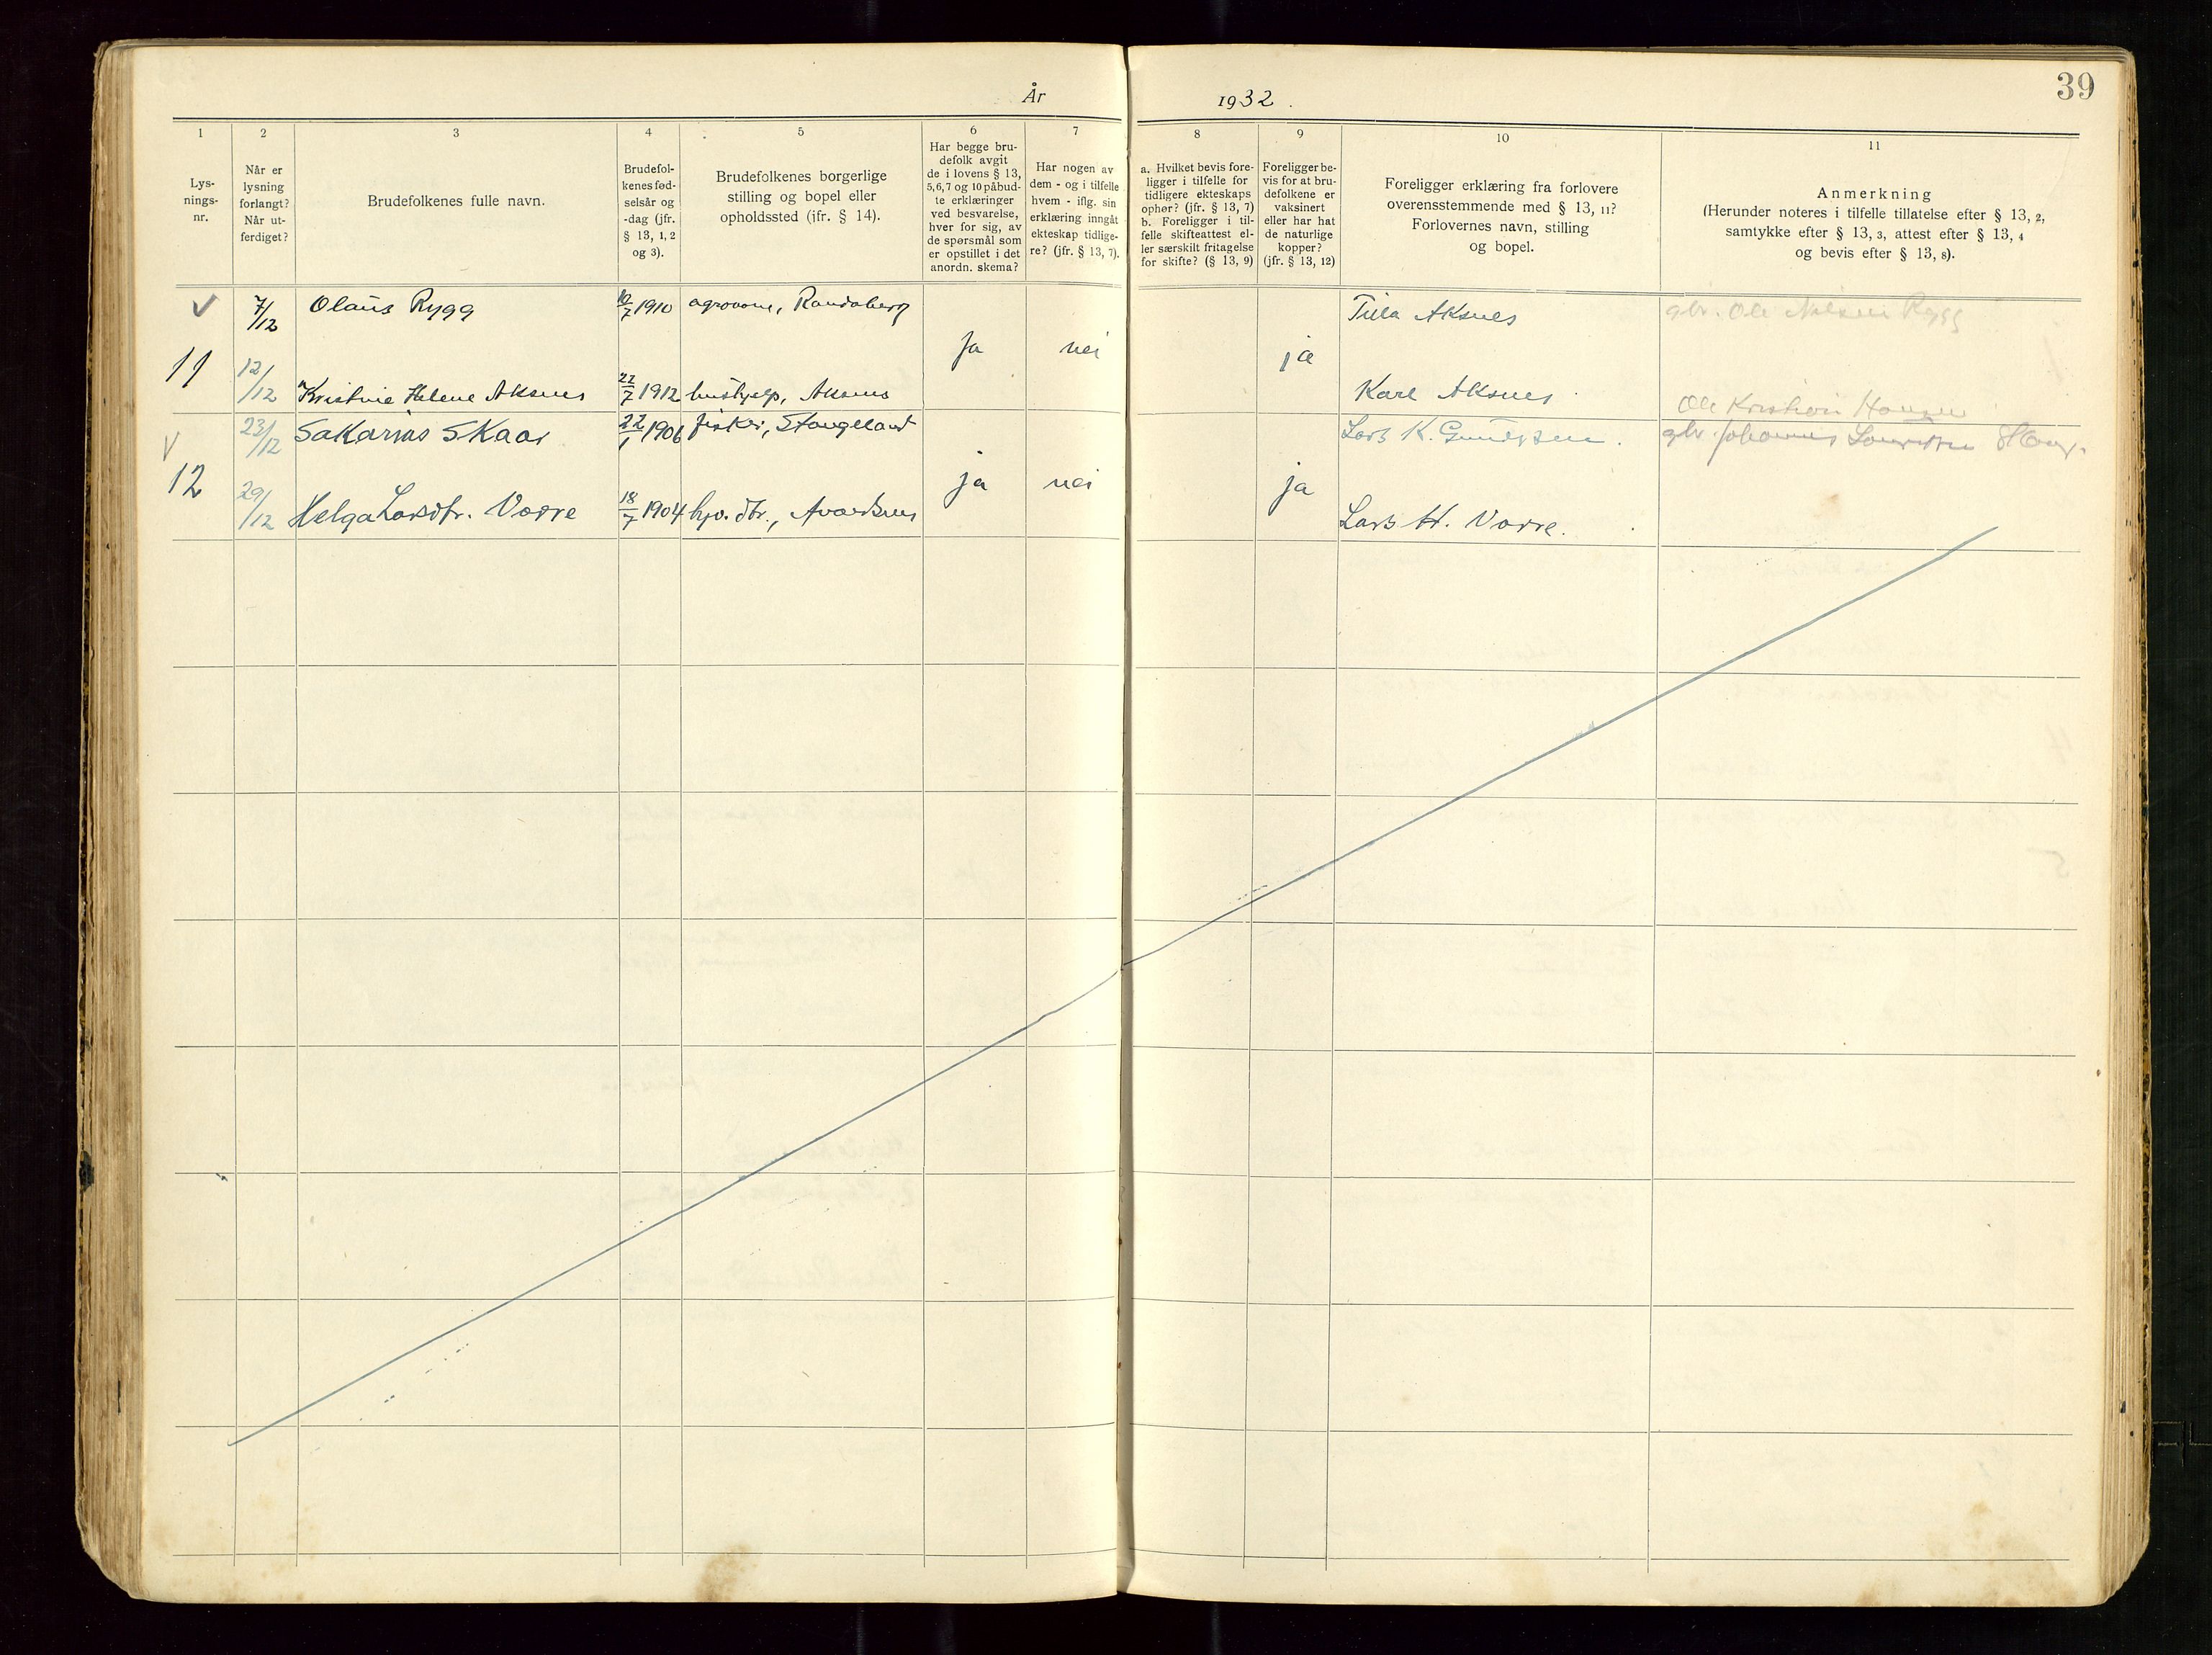 39
År 1932.
1
Lys-
nings-
nr.
2
Når er
lysning
forlangt?
Når ut-
ferdiget?
3
Brudefolkenes fulle navn.
4
Brudefol-
kenes fød-
selsår og
-dag (jfr.
§ 13, 1, 2
og 3).
5
Brudefolkenes borgerlige
stilling og bopel eller
opholdssted (jfr. § 14).
6
Har begge bru-
defolk avgit
de i lovens § 13,
5,6,7 og 10 påbud-
te erklæringer
ved besvarelse,
hver for sig, av
de spørsmål som
er opstillet i det
anordn. skema?
7
Har nogen av
dem - og i tilfelle
hvem - iflg. sin
erklæring inngåt
ekteskap tidlige-
re? (jfr. § 13, 7).
8
a. Hvilket bevis fore-
ligger i tilfelle for
tidligere ekteskaps
ophør? (jfr. § 13, 7)
b. Foreligger i til-
felle skifteattest el-
ler særskilt fritagelse
for skifte? (§ 13, 9)
9
Foreligger be-
vis for at bru-
defolkene er
vaksinert
eller har hat
de naturlige
kopper?
(jfr. § 13, 12)
10
Foreligger erklæring fra forlovere
overensstemmende med § 13, 11?
Forlovernes navn, stilling
og bopel.
11
Anmerkning
(Herunder noteres i tilfelle tillatelse efter § 13, 2,
samtykke efter § 13, 3, attest efter § 13, 4
og bevis efter § 13, 8).
7/12 Olaus Rygg 10/7 1910 agronom, Randaberg Aksnes gbr. Ole Nilsen Rygg
11 Ja nei ja
12/12 Kristine Helene Aksnes 22/7 1912 hushjelp, Aksnes Karl Aksnes
Ole Kristian Hansen
23/12 Sakarias Skaar 22/1 1906 fisker, Stangeland Lars K. Gundersen. gbr. Johannes
12 ja nei ja
29/12 Helga Larsdtr. Vorre 18/7 1904 Lars H. Vorre.